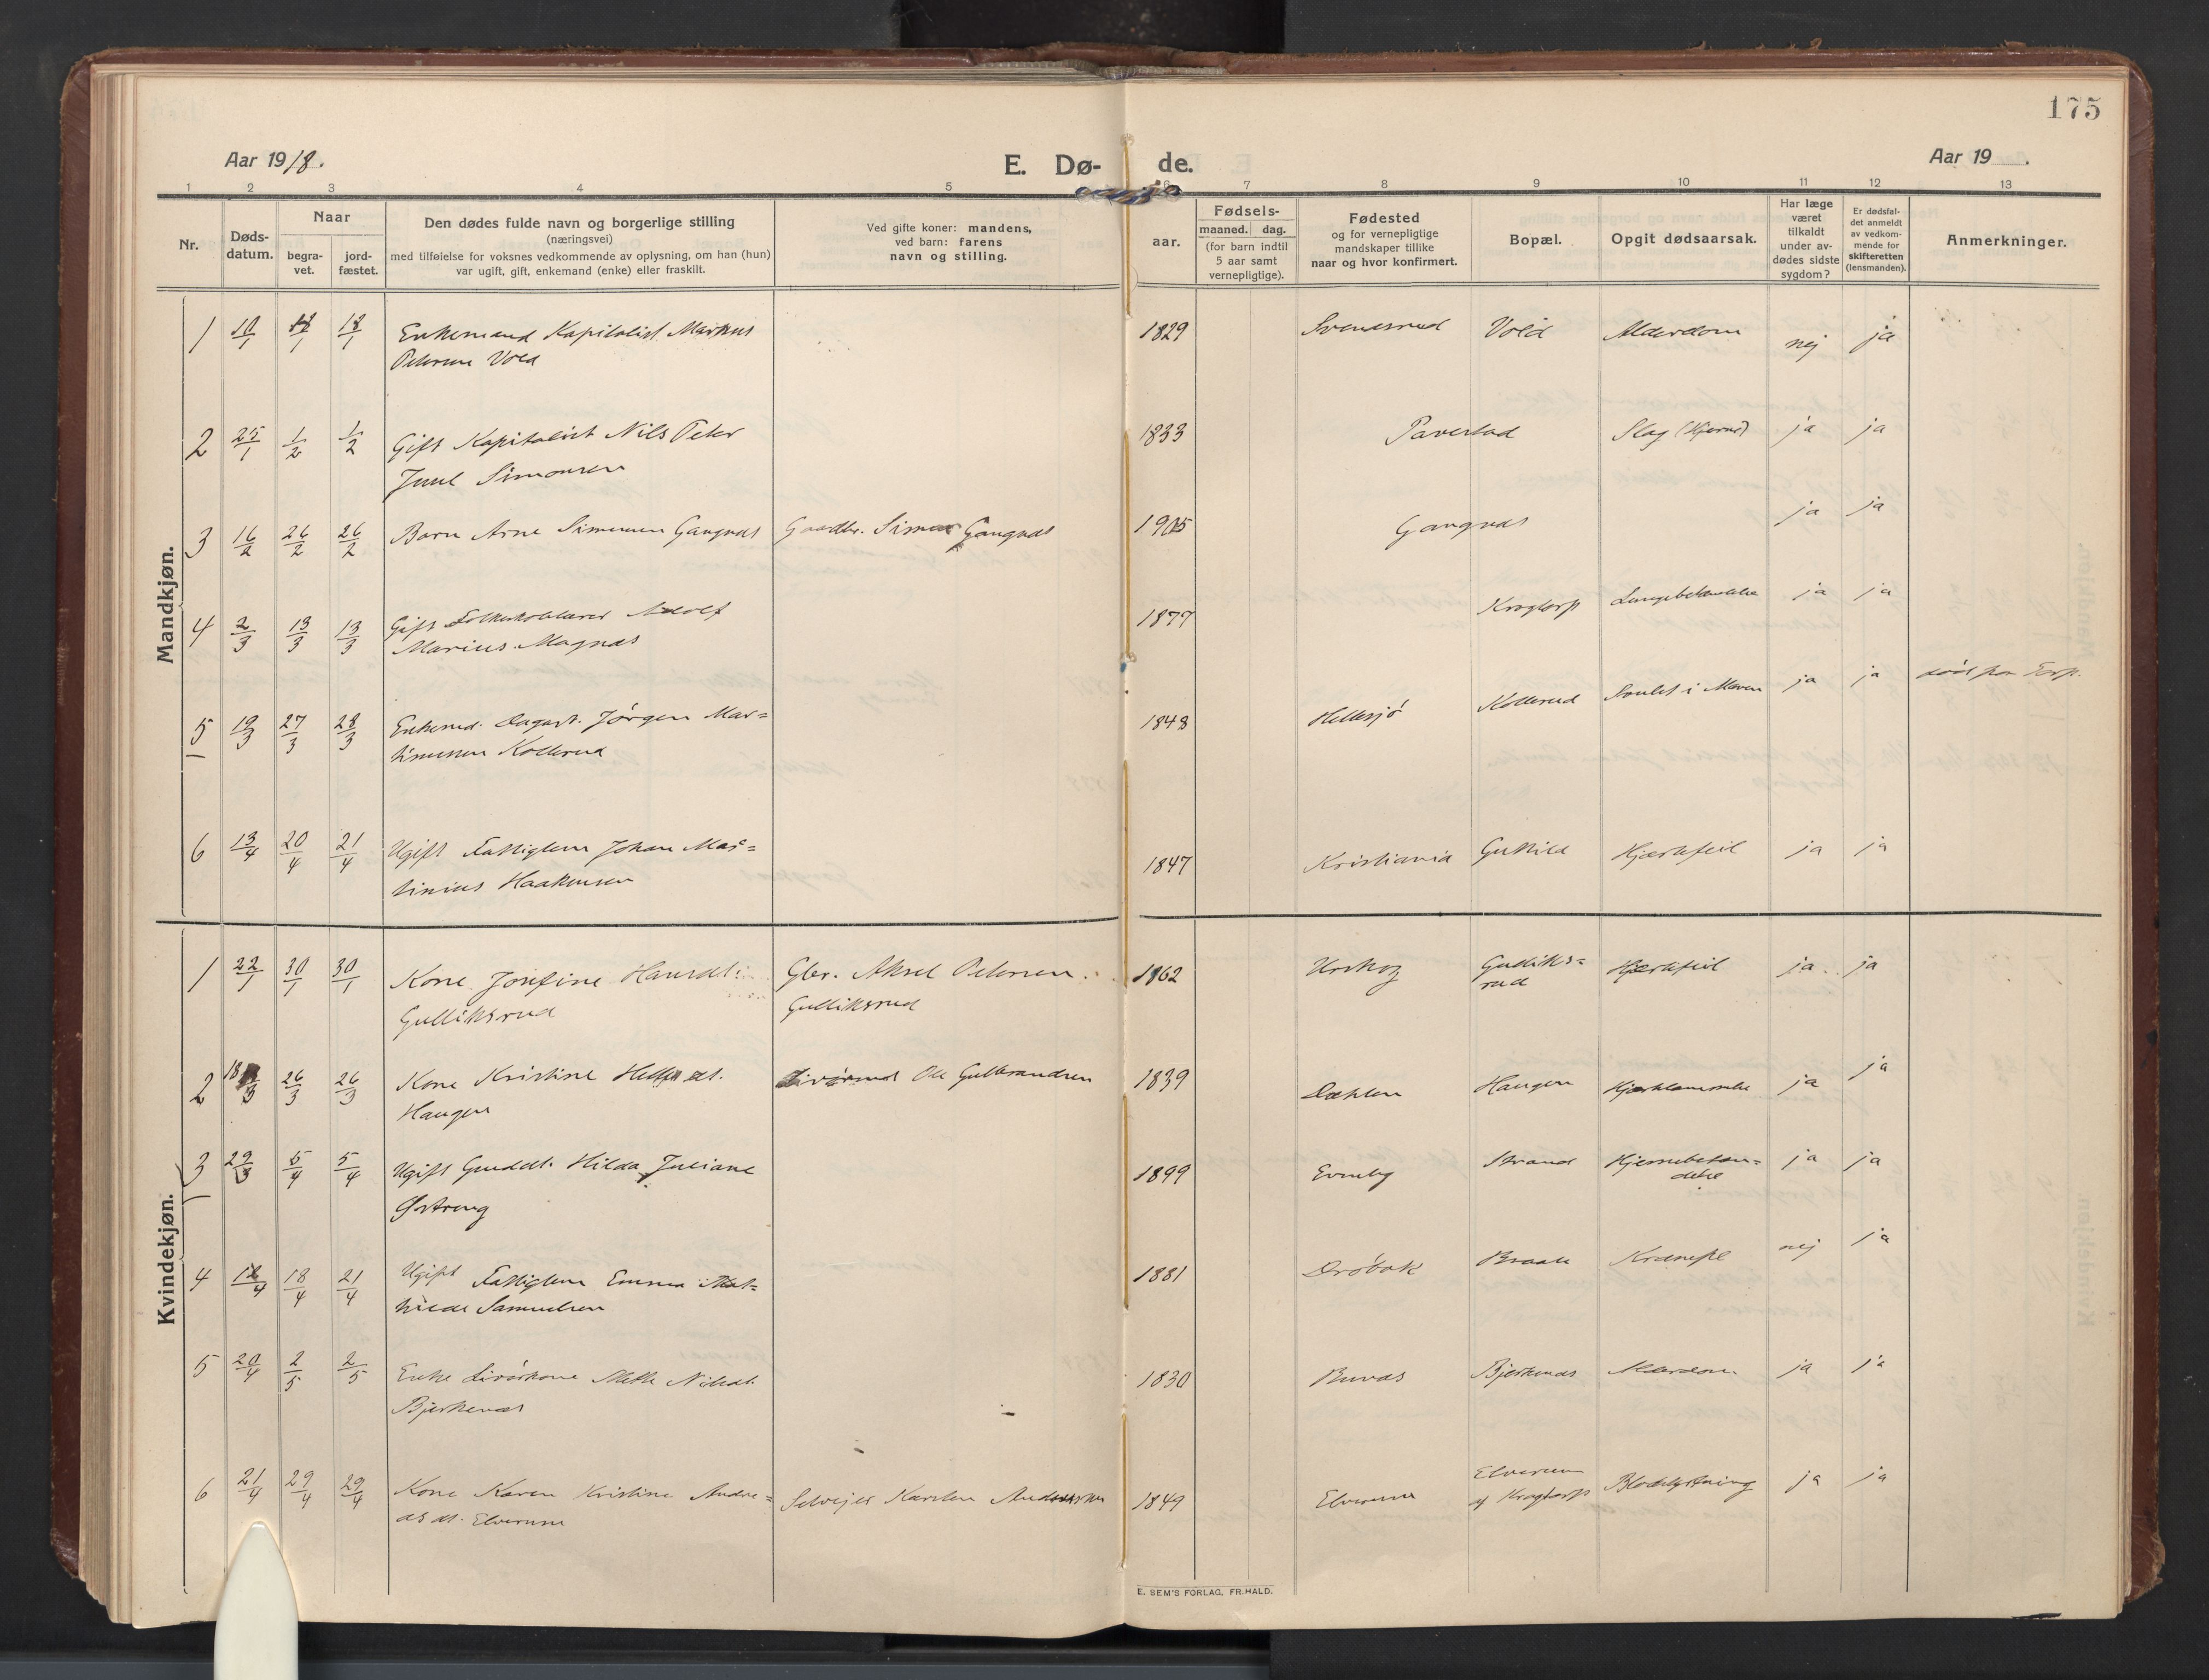 175
Aar 1918. E. Dø- de. Aar 19 .
1 2 3 4 5 6 7 8 9 10 11 12 13
Nr. Døds-datum. Naar begra-vet. jord-fæstet.
Den dødes fulde navn og borgerlige stilling
(næringsvei)
med tilføielse for voksnes vedkommende av oplysning, om han (hun)
var ugift, gift, enkemand (enke) eller fraskilt.
Ved gifte koner: mandens,
ved barn: farens
navn og stilling.
aar.
Fødsels-
maaned. dag.
(for barn indtil
5 aar samt
vernepligtige).
Fødested
og for vernepligtige
mandskaper tillike
naar og hvor konfirmert.
Bopæl.
Opgit dødsaarsak.
Har læge
været
tilkaldt
under av-
dødes sidste
sygdom?
Er dødsfal-
det anmeldt
av vedkom-
mende for
skifteretten
(lensmanden).
Anmerkninger.
Mandkjøn.
1 10/1 18/1 18/1 Enkemand Kapitalist Markus 1829 Svensrud Vold Alderdom nej ja
Petersen Vold
2 25/1 1/2 1/2 Gift Kapitalist Nils Peter 1833 Paverstad Slag (Hjerne) ja ja
Juul Simonsen
3 16/2 26/2 26/2 Barn Arne Simensen Gangnæs Gaardbr. Simen Gangnæs 1905 Gangnæs ja ja
4 2/3 13/3 13/3 Gift Adolf 1877 Krogtorp Lungebetændelse ja ja
Marius Magnæs
5 19/3 27/3 28/3 Enkemd. Dagarb. Jörgen Mar= 1848 Hellesjö Kollerud Svulst i Maven ja ja død paa Torp.
Kollerud
6 13/4 20/4 21/4 Ugift Fattiglem Johan Mar= 1847 Kristiania Gutkild Hjertefeil ja ja
tinius Haakensen
Kvindekjøn.
1 22/1 30/1 30/1 Kone Josefine Hansdt. Gbr. Aksel Petersen 1862 Urskog Gulliks= Hjertefeil ja ja
Gulliksrud Gulliksrud rud
2 18/3 26/3 26/3 Kone Kristine dt. Ole Gulbrandsen 1839 Dæhlen Haugen Hjertelammelse ja ja
Haugen
3 29/3 5/4 5/4 Ugift Gmddt. Hilda Juliane 1899 Evneby Strand Hjernebetæn= ja ja
Østreng delse
4 12/4 18/4 21/4 Ugift Fattiglem Emma Mat= 1881 Dröbak Braate Krampe nej ja
hilde Samuelsen
5 20/4 2/5 2/5 Enke Livörkone Mette Nilsdt. 1830 Buvæs Bjerkenæs Alderdom ja ja
Bjerkenæs
6 21/4 29/4 29/4 Kone Karen Kristine Andre= Selvejer Karsten Andersen 1849 Elverum Elverum Blodstyrtning ja ja
as dt. Elverum af Krogtorp
E. SEM'S FORLAG, FR.HALD.